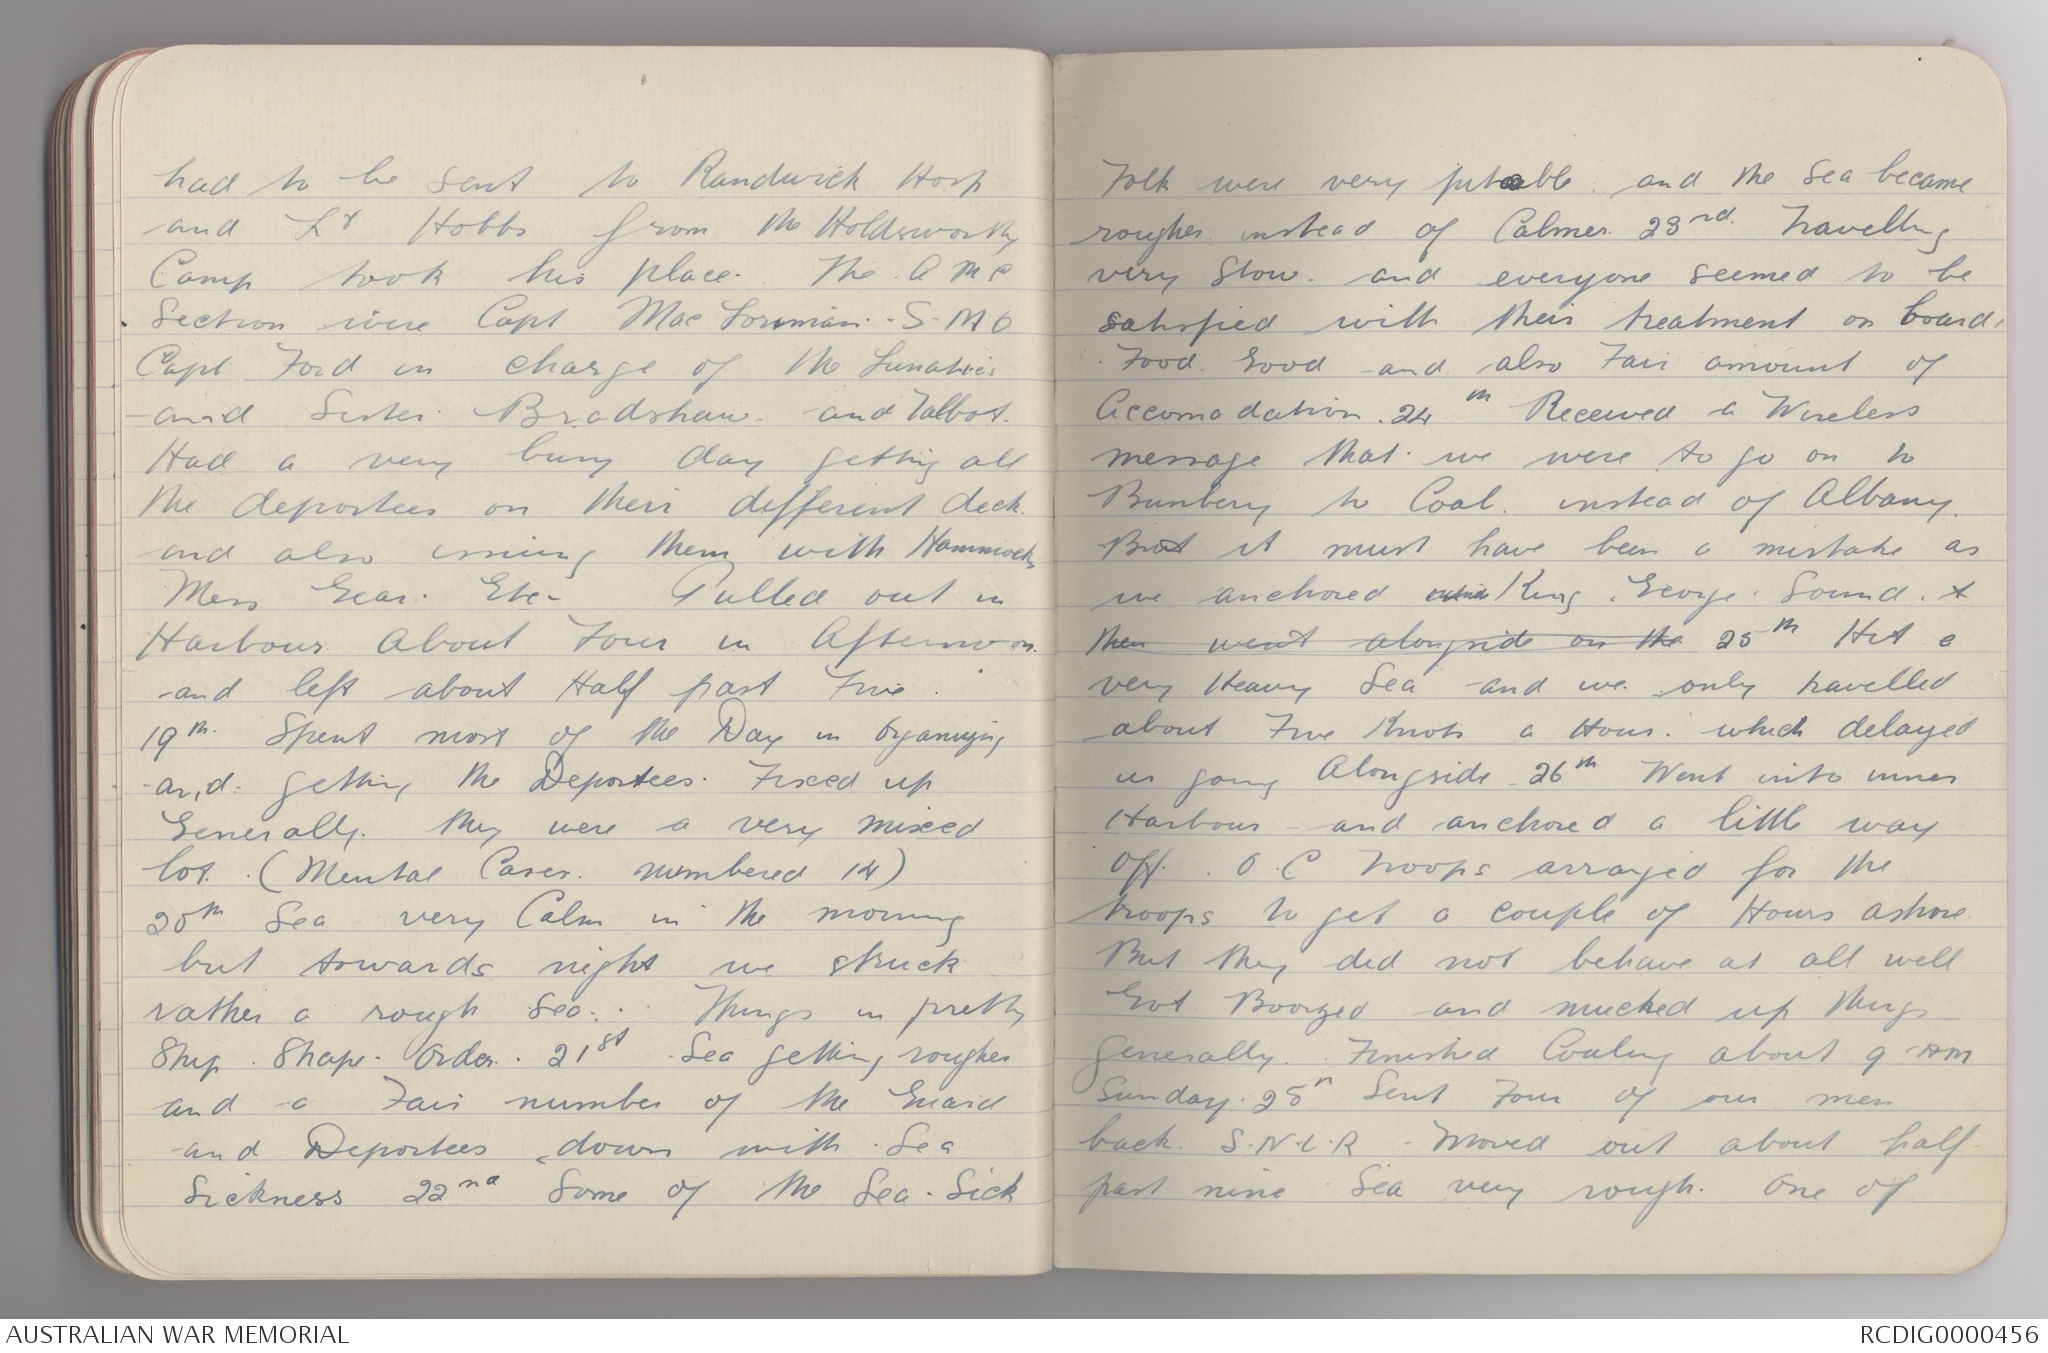 had to be sent to Randwick Hosp
and Lt Hobbs from the Holdsworthy
Camp took his place. The A M C
Section were Capt Mac - S M O
Capt Ford in charge of the Lunatics
and Sister Bradshaw and Talbot.
Had a very busy day getting all
the deportees on their different deck.
and also issuing them with Hammocks
Mess Gear. Etc- Pulled out in
Harbour About Four in Afternoon.
and left about Half past Five.
19th. Spent most of the Day in Organising
and. getting the Deportees. Fixed up
Generally. they were a very mixed
lot. (Mental Cases. numbered 14)
20th Sea very Calm in the morning
but towards night we struck
rather a rough Sea. Things in pretty
Ship. Shape. Order. 21st. Sea getting rougher
and a Fair number of the Guard
and Deportees down with Sea
Sickness 22nd Some of the Sea-Sick
Folk were very and the Sea became
rougher instead of Calmer. 23rd. Travelling
very Slow. and everyone seemed to be
satisfied with their treatment on board.
Food Good and also Fair amount of
Accomodation. 24th Received a Wireless
message that we were to go on to
Bunbery to Coal. instead of Albany.
But it must have been a mistake as
we anchored outside King. George. Sound. +
then went alongside on the 25th Hit a
very Heavy Sea and we only travelled
about Five Knots a Hour. which delayed
us going Alongside. 26th Went into inner
Harbour and anchored a little way
Off. O.C Troops arranged for the
troops to get a couple of Hours ashore.
But they did not behave at all well
Got Boozed and mucked up things
generally. Finished Coaling about 9 AM
Sunday. 28th Sent Four of our men
back. S.N.L.R. Moved out about half
past nine Sea very rough. One of
AUSTRALIAN WAR MEMORIAL
RCDIG0000456